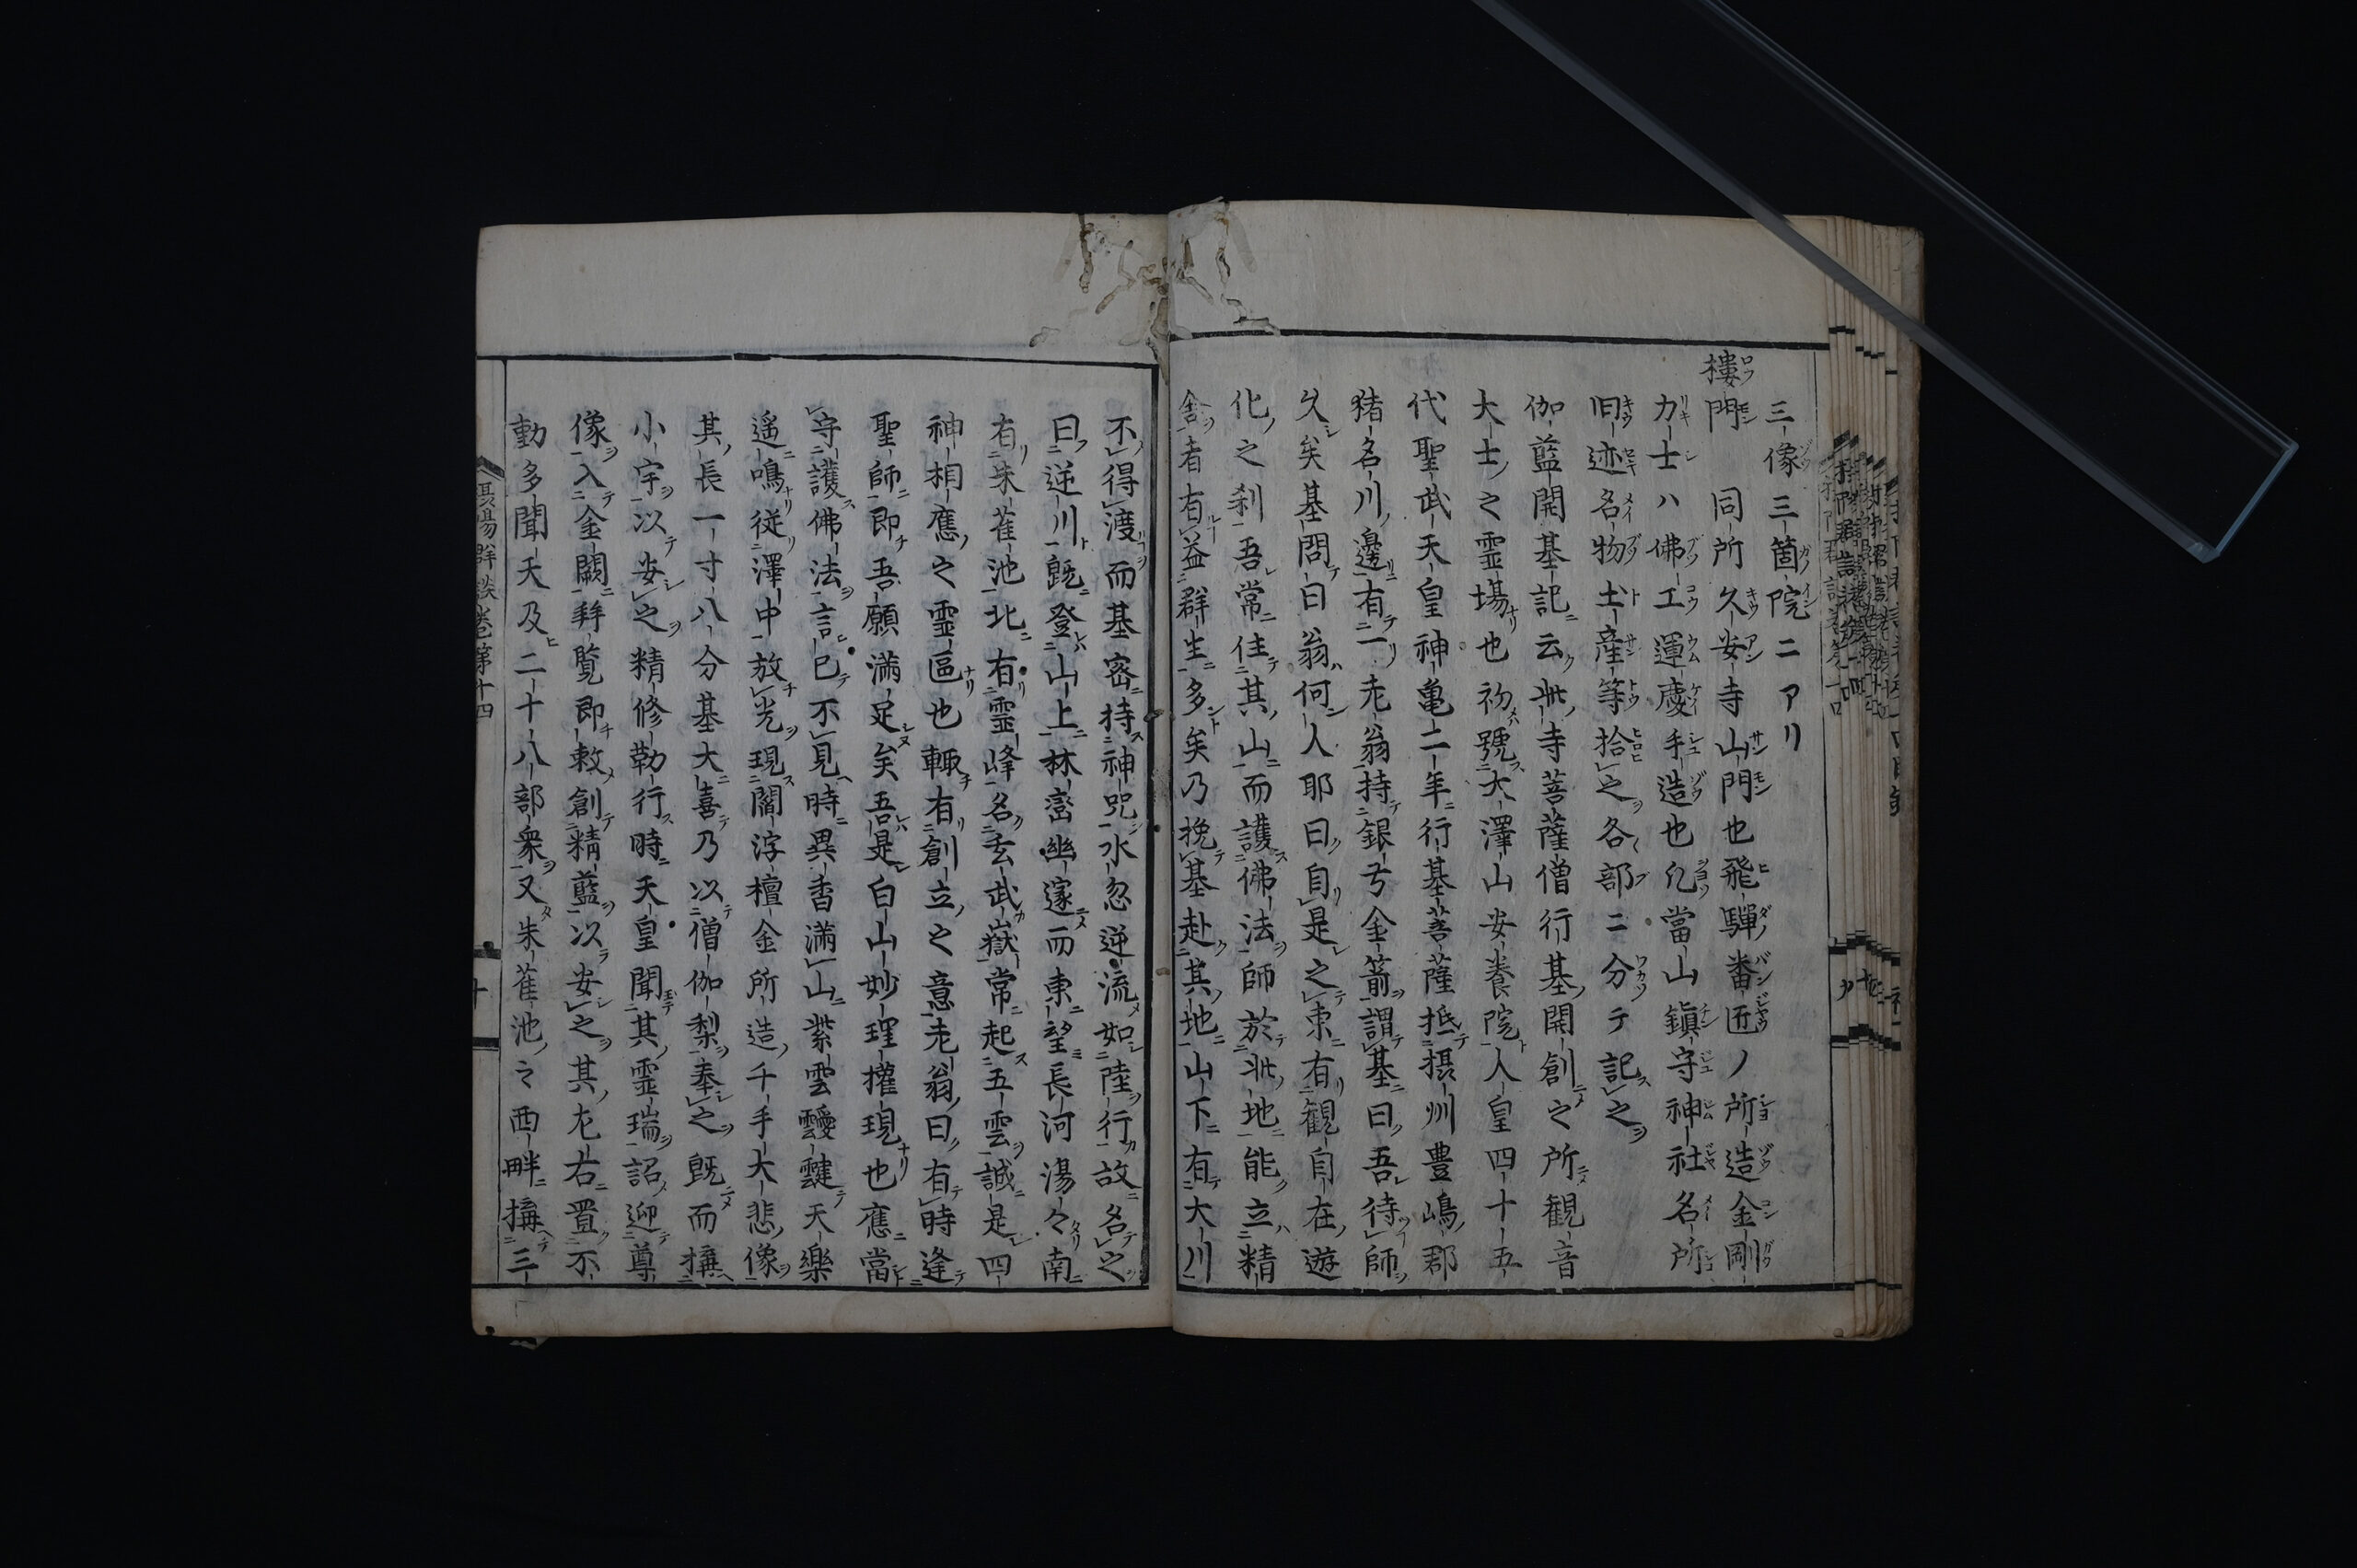 三像三箇院ニアリ
樓門 同所久安寺山門也飛驒番匠ノ所造金剛
力士ハ佛工運慶手造也凡當山鎮守神社名所
旧迹名物土産等拾之各部ニ分テ記之
伽藍開基記云此寺菩薩僧行基開創之所観音
大士之霊場也初號大澤山安養院人皇四十五
代聖武天皇神亀二年行基菩薩抵摂州豊嶋郡
猪名川邊有一老翁持銀弓金箭謂基曰吾待師
久矣基問曰翁何人耶曰自是之東有観自在遊
化之刹吾常住其山而護佛法師於此地能立精
舎者有益群生多矣乃挽基赴其地山下有大川
不得渡而基密持神呪水忽逆流如陸行故名之
曰逆川既登山上林巒幽邃而東望長河湯々南
有朱雀池北有霊峰名玄武嶽常起五雲誠是四
神相應之霊區也輙有創立之意老翁曰有時逢
聖師即吾願満足矣吾是白山妙理權現也應當
守護佛法言已不見時異香満山紫雲靉靆天樂
遥鳴從澤中放光現閻浮檀金所造千手大悲像
其長一寸八分基大喜乃以僧伽梨奉之既而搆
小宇以安之精修勤行時天皇聞其霊瑞詔迎尊
像入金闕拜覧即敕創精藍以安之其左右置不
動多聞天及二十八部衆又朱雀池之西畔搆三
群談巻第十四
十